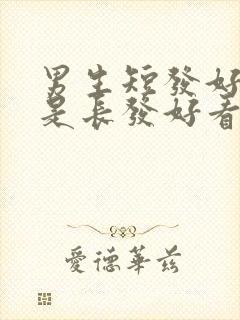 男生短發好
是長發好看
愛德華茲